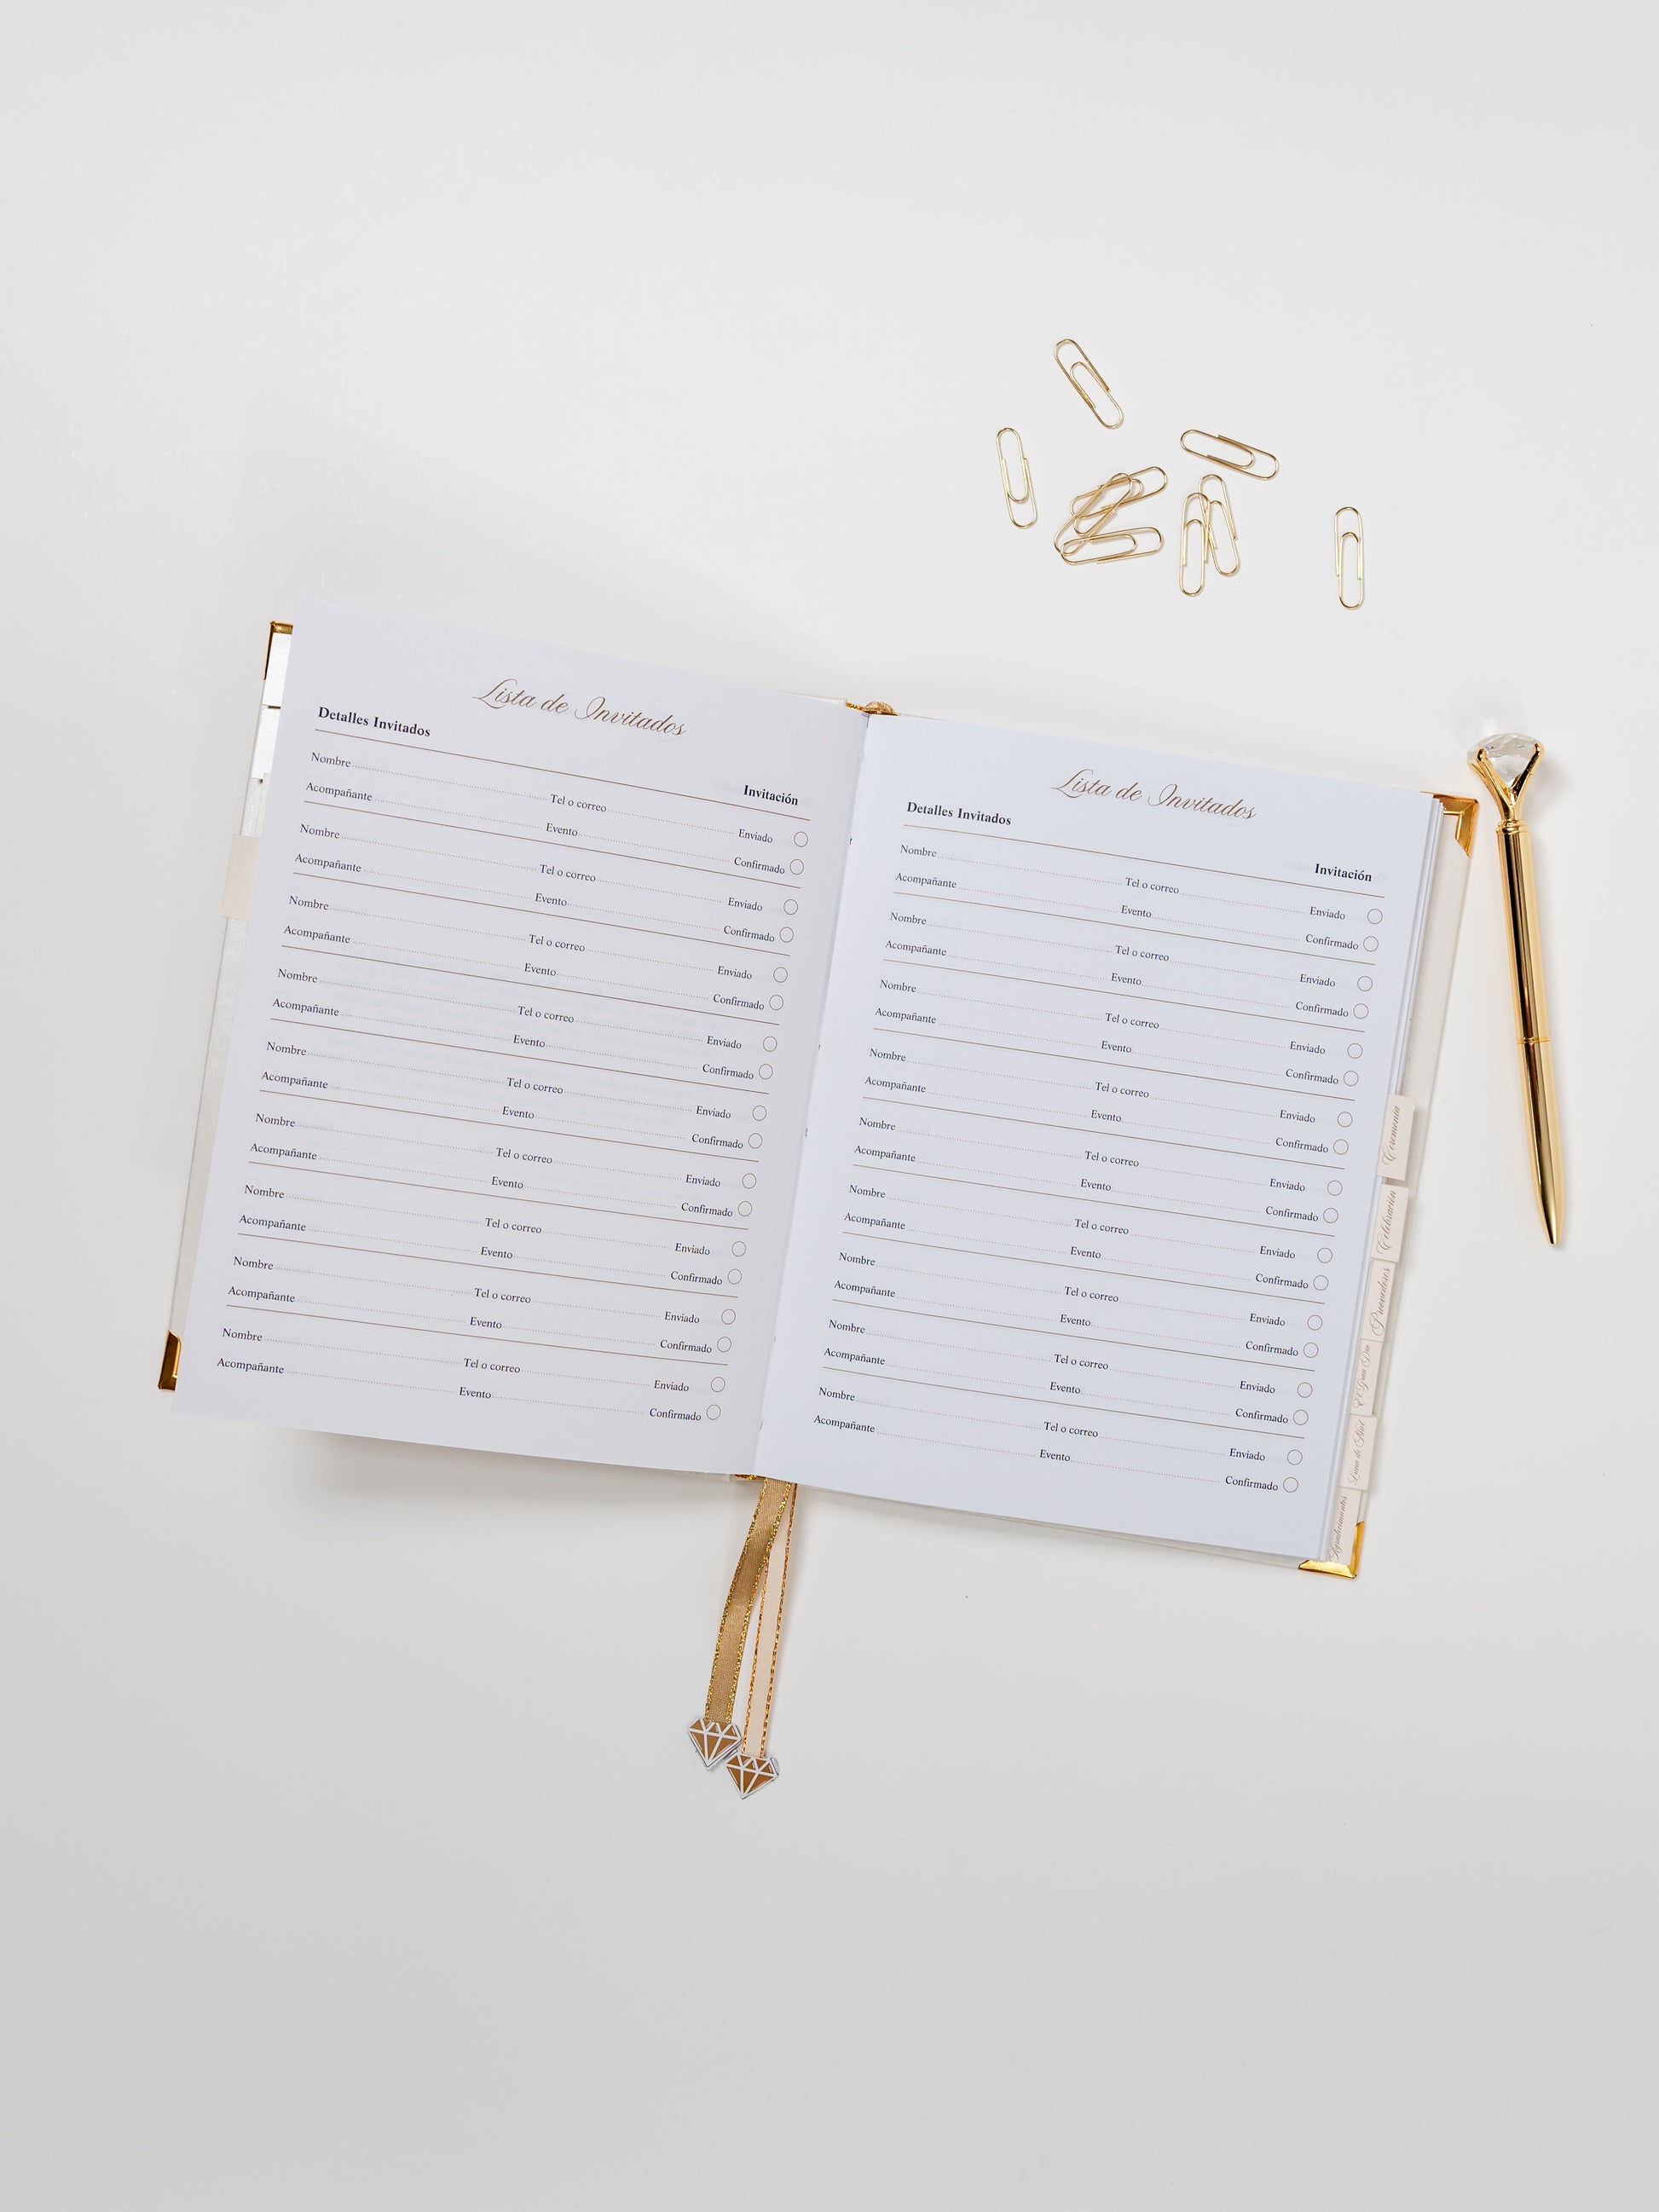 Lista de Invitados
Detalles Invitados Invitación
Nombre Tel o correo Enviado
Acompañante Evento Confirmado
Nombre Tel o correo Enviado
Acompañante Evento Confirmado
Nombre Tel o correo Enviado
Acompañante Evento Confirmado
Nombre Tel o correo Enviado
Acompañante Evento Confirmado
Nombre Tel o correo Enviado
Acompañante Evento Confirmado
Nombre Tel o correo Enviado
Acompañante Evento Confirmado
Nombre Tel o correo Enviado
Acompañante Evento Confirmado
Nombre Tel o correo Enviado
Acompañante Evento Confirmado
Nombre Tel o correo Enviado
Acompañante Evento Confirmado
Lista de Invitados
Detalles Invitados Invitación
Nombre Tel o correo Enviado
Acompañante Evento Confirmado
Nombre Tel o correo Enviado
Acompañante Evento Confirmado
Nombre Tel o correo Enviado
Acompañante Evento Confirmado
Nombre Tel o correo Enviado
Acompañante Evento Confirmado
Nombre Tel o correo Enviado
Acompañante Evento Confirmado
Nombre Tel o correo Enviado
Acompañante Evento Confirmado
Nombre Tel o correo Enviado
Acompañante Evento Confirmado
Nombre Tel o correo Enviado
Acompañante Evento Confirmado
Nombre Tel o correo Enviado
Acompañante Evento Confirmado
Ceremonia
Celebración
Proveedores
El Gran Día
Luna de Miel
Agradecimientos